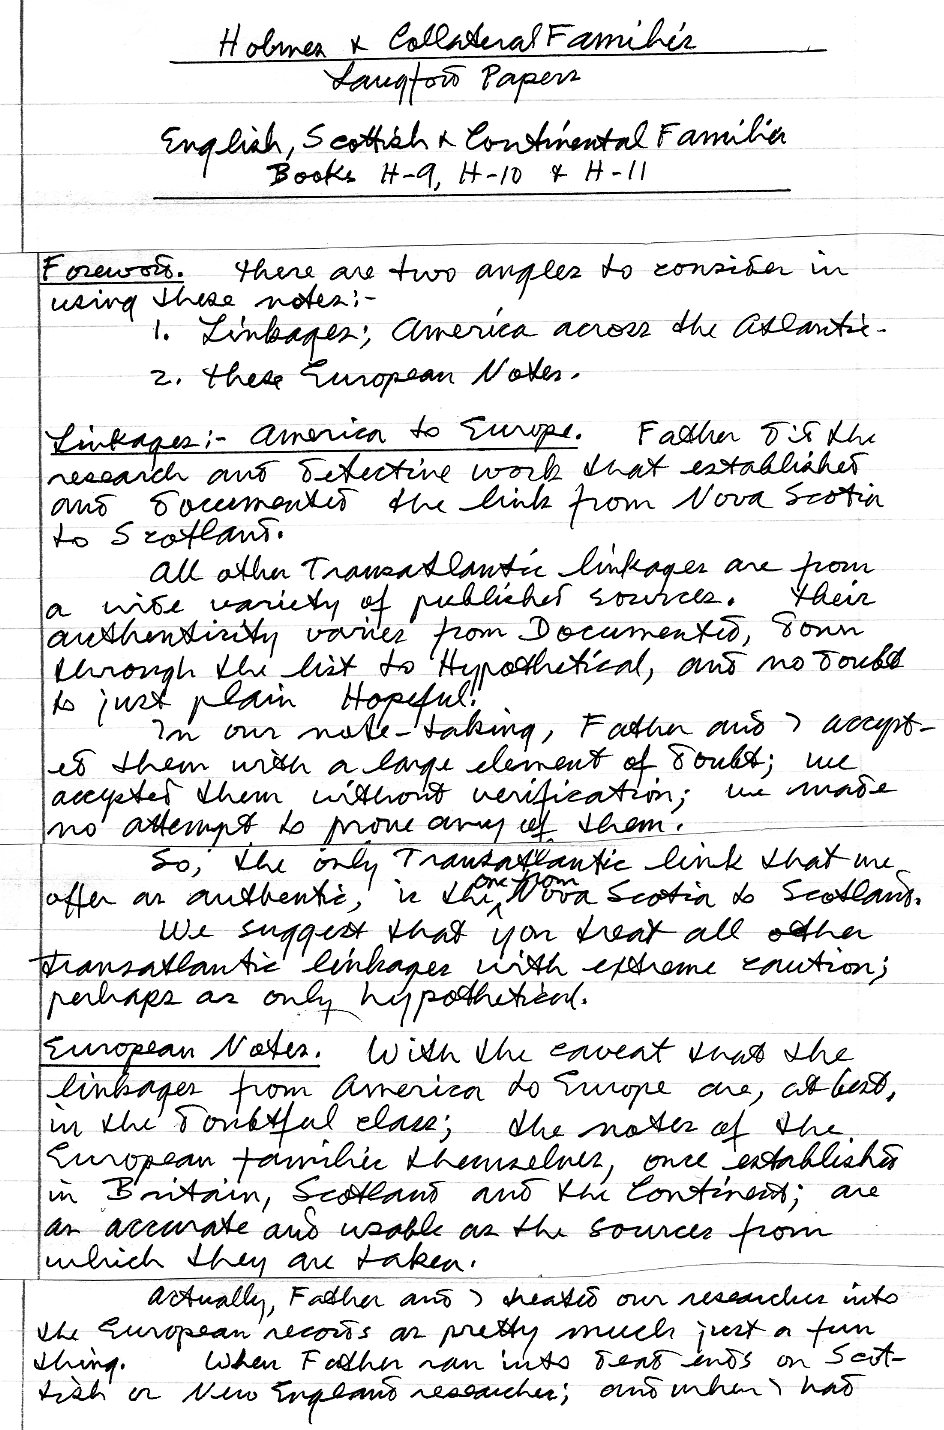 Holmes & Collateral Families
Langford Papers
English, Scottish & Continental Families
Books H-9, H-10 & H-11
Foreword. There are two angles to consider in
using these notes:-
1. Linkages; America across the Atlantic.
2. These European Notes.
Linkages:- America to Europe. Father did the
research and detective work that established
and documented the link from Nova Scotia
to Scotland.
All other Transatlantic linkages are from
a wide variety of published sources. Their
authenticity varies from Documented, down
through the list to Hypothetical, and no doubt
to just plain "Hopeful"!
In our note-taking, Father and I accept-
ed them with a large element of doubt; we
accepted them without verification; we made
no attempt to prove any of them.
So, the only Transatlantic link that we
offer as authentic, is the one from Nova Scotia to Scotland.
We suggest that you treat all other
transatlantic linkages with extreme caution;
perhaps as only hypothetical.
European Notes. With the caveat that the
linkages from America to Europe are, at best,
in the doubtful class; the notes of the
European families themselves, once established
in Britain, Scotland and the Continent; are
as accurate and usable as the sources from
which they are taken.
Actually, Father and I treated our researches into
the European records as pretty much just a fun
thing. When Father ran into dead ends on Scot-
tish or New England researches; and when I had